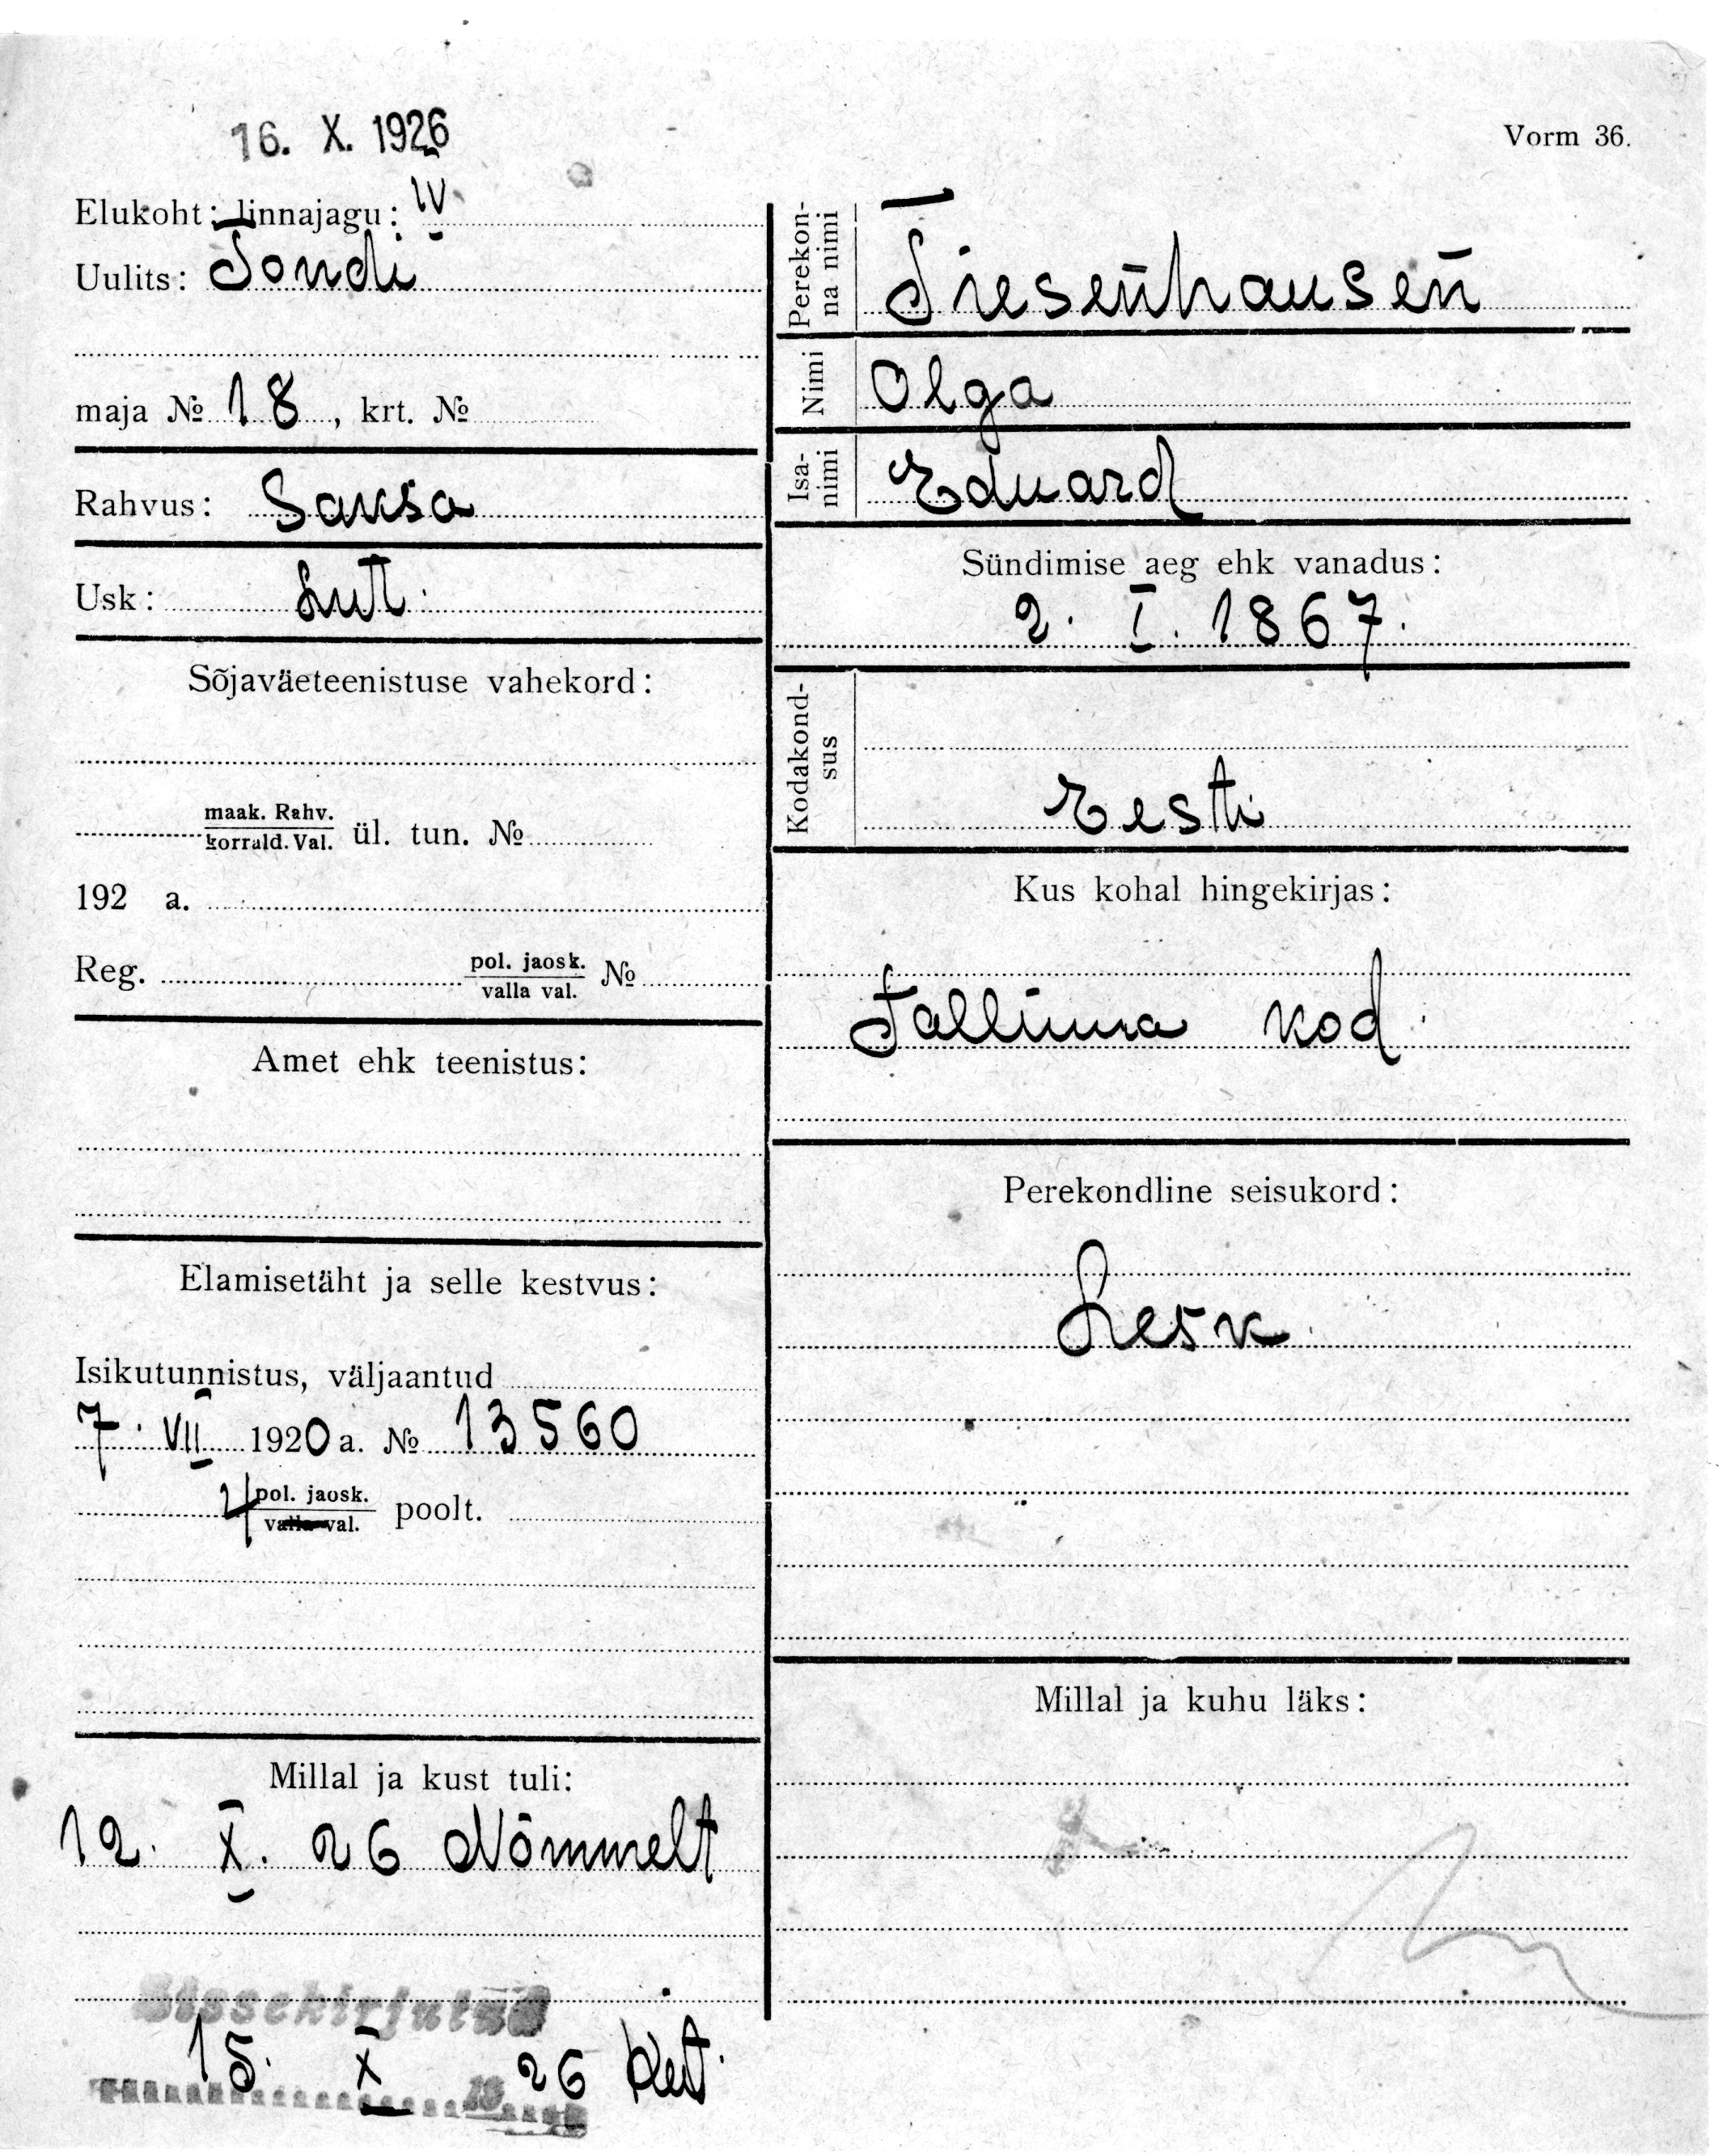 16. X. 1926
Vorm 36.
Elukoht: linnajagu: IV
Uulits: Tondi
maja № 18, krt. №
Rahvus: Saksa
Usk: Lut.
Sõjaväeteenistuse vahekord:
maak. Rahv.
korrald. Val. ül. tun. №
192 a.
Reg. pol. jaosk. №
valla val.
Amet ehk teenistus:
Elamisetäht ja selle kestvus:
Isikutunnistus, väljaantud
7. VII 1920 a. № 13560
4 pol. jaosk. poolt.
valla val.
Millal ja kust tuli:
12. X. 26 Nõmmelt
Sissekirjutud
15. X 26
Perekonna nimi
Tiesenhausen
Nimi
Olga
Isanimi
Eduard
Sündimise aeg ehk vanadus:
2. I. 1867.
Kodakondsus
Eesti
Kus kohal hingekirjas:
Tallinna kod.
Perekondline seisukord:
Lesk.
Millal ja kuhu läks: